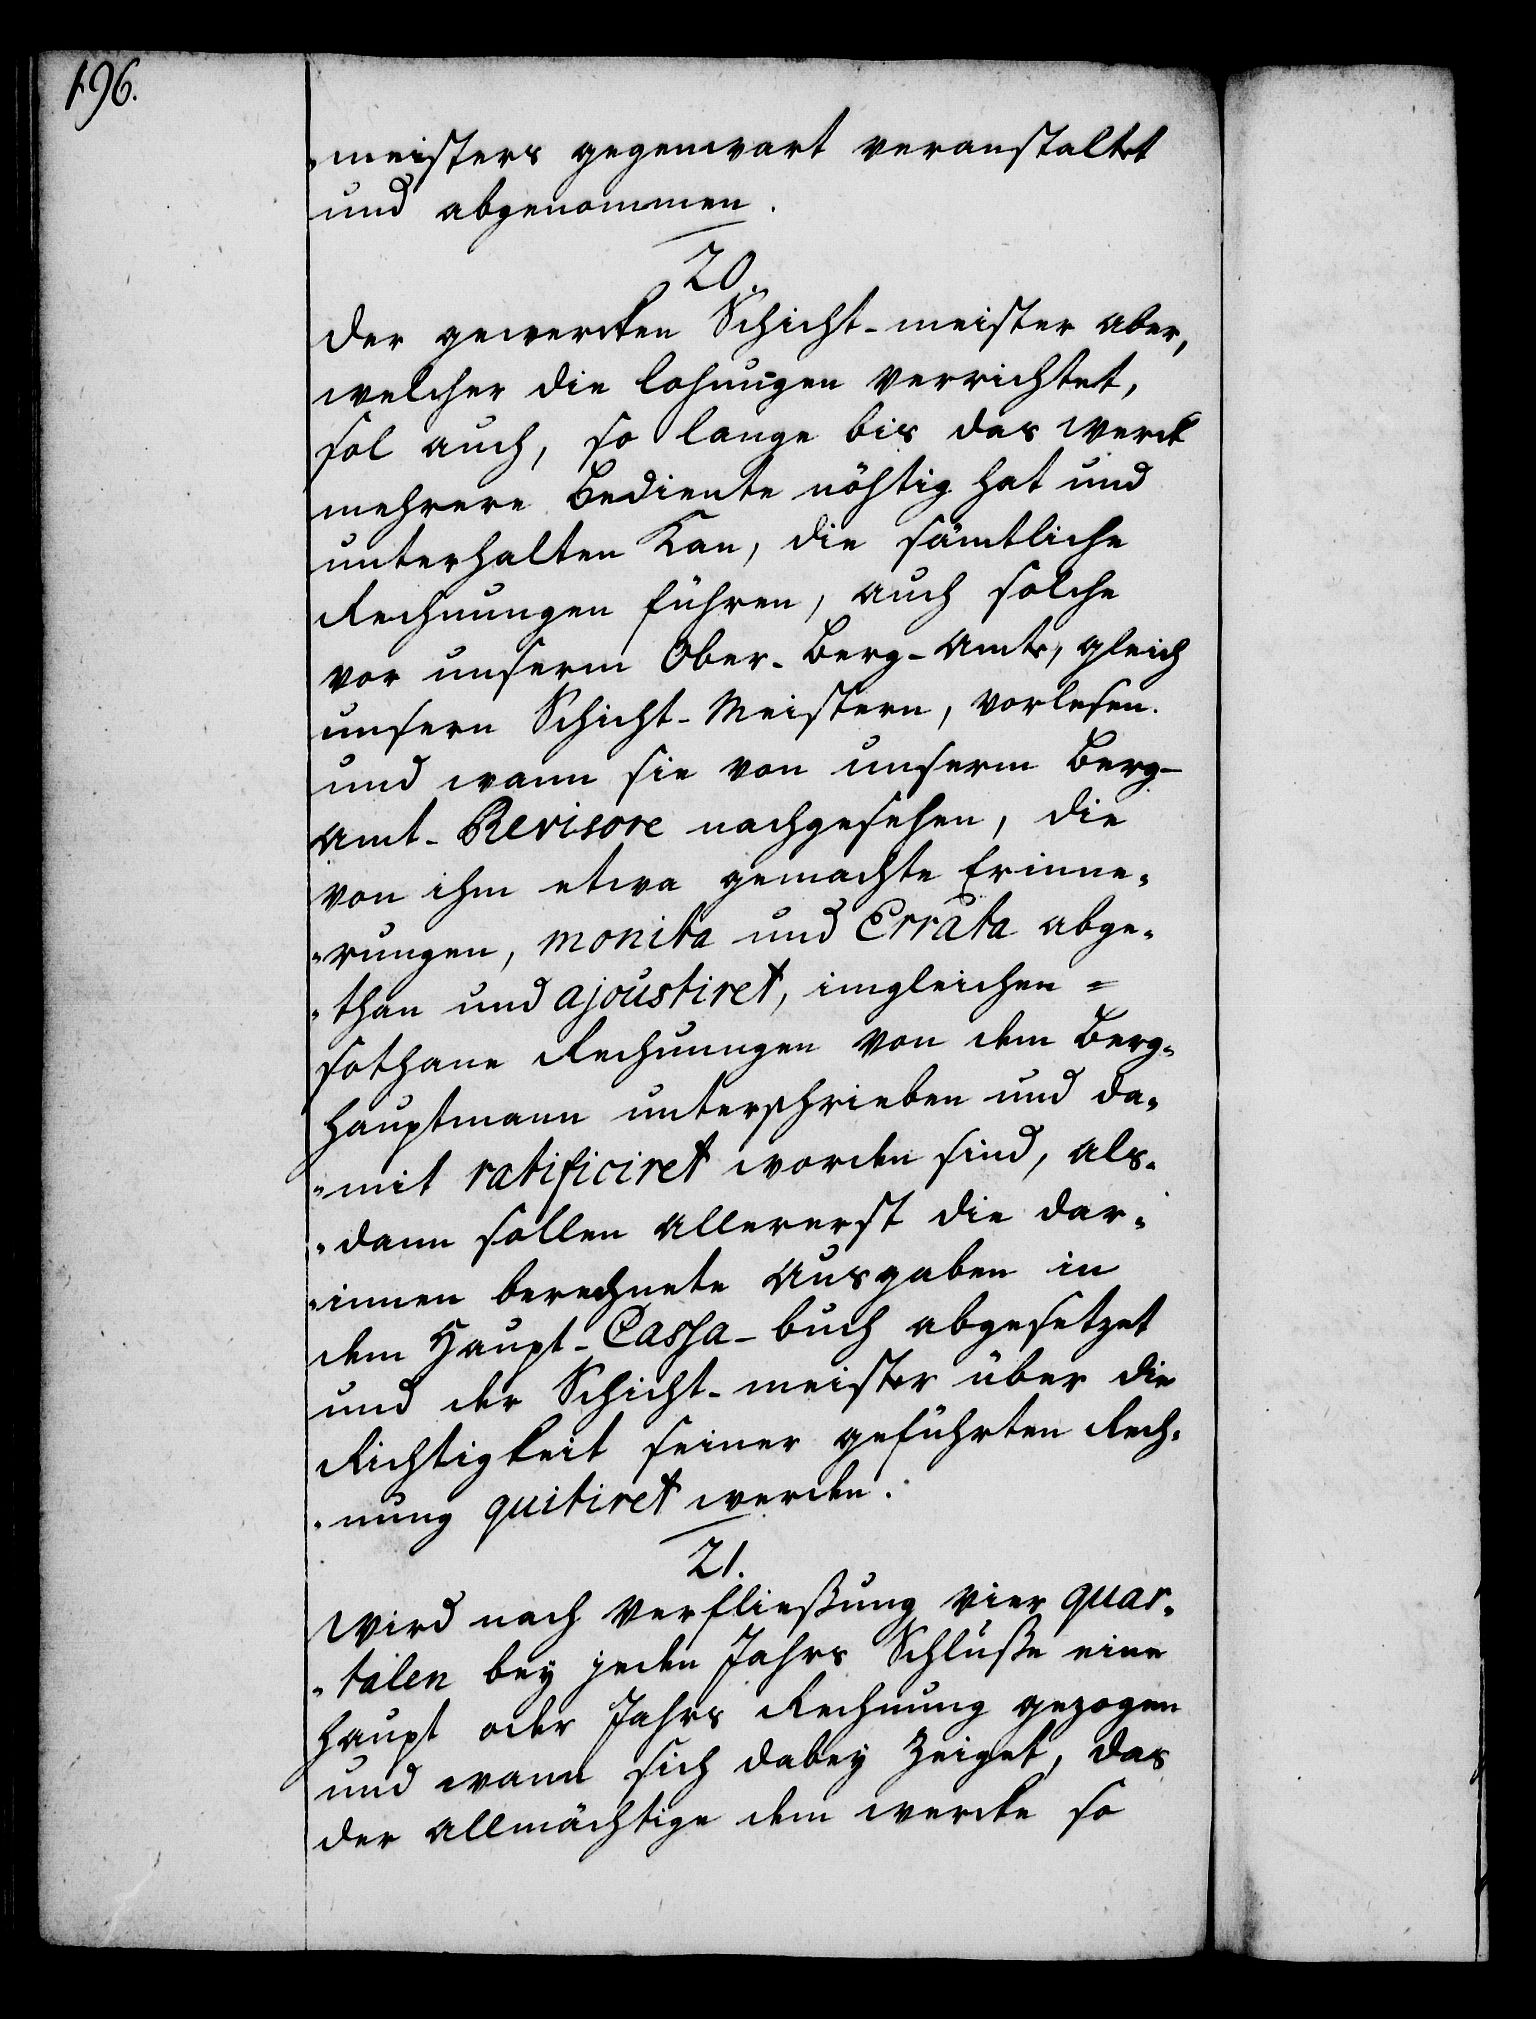 196.
-meisters gegenwart veranstaltet
und abgenommen.
20.
Der gewercken Schicht-meister aber,
welcher die lohnungen verrichtet,
sol auch, so lange bis das werck
mehrere Bediente nöhtig hat und
unterhalten Kan, die sämtliche
Rechnungen führen, auch solche
vor unserm Ober-Berg-Amte, gleich
unsern Schicht-Meistern, vorlesen.
und wann sie von unserm Berg-
Amt-Revisore nachgesehen, die
von ihm etwa gemachte Erinne-
-rungen, monita und Errata abge-
-than und ajoustiret, imgleichen =
sothane Rechnungen von dem Berg-
hauptmann unterschrieben und da-
-mit ratificiret worden sind, als-
-dann sollen allererst die dar-
-innen berechnete Ausgaben in
dem Haupt-Cassa-buch abgesetzet
und der Schicht-meister über die
Richtigkeit seiner geführten Rech-
-nung quitiret werden.
21.
Wird nach Verfließung vier quar-
-talen bey jeden Jahrs Schluße eine
haupt oder Jahrs Rechnung gezogen
und wann sich dabey Zeiget, das
der allmächtige dem wercke so